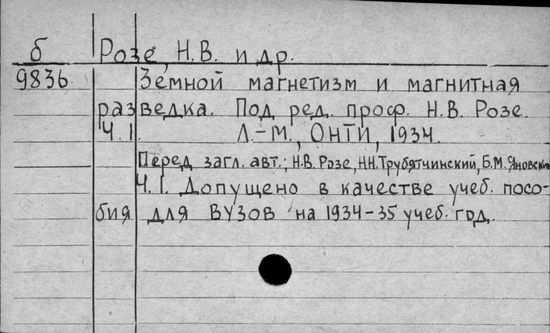 б Розе, Н.В. и др.
9836 Земной магнетизм и магнитная
разведка. Под ред. проф. Н.В. Розе.
Ч.1. Л.-М., ОНТИ, 1934.
Перед загл. авт.: Н.В. Розе, Н.Н. Трубятчинский, Б.М. Яновский
Ч.1. Допущено в качестве учеб. посо-
бия для ВУЗов на 1934-35 учеб. год.